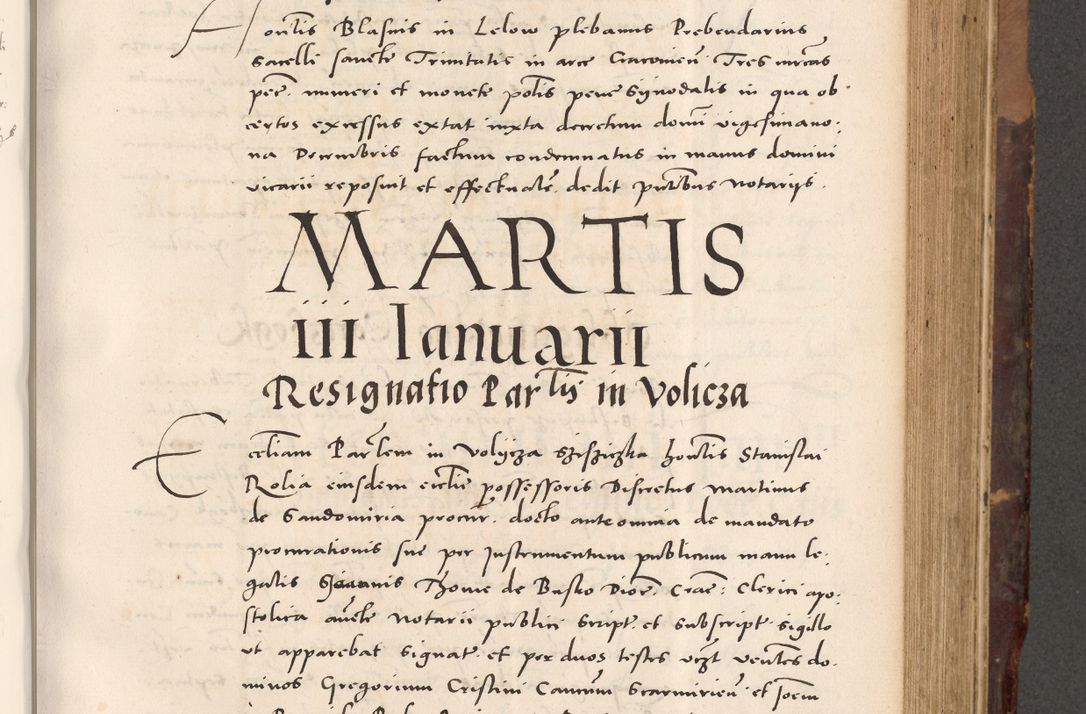 Hontis Blasius in Lelow plebanus Prebendarius
Sacelli sancte Trinitatis in arce Cracovien̄ Tres mrcas
pec̄. numeri et monete polis pene Synodalis in qua ob
certos excessus extat iuxta decretum domi vigesimano:
na Decembris factum condemnatus in manus domini
vicarii reposuit et effectualr̄ dedit pntibus notariis.
MARTIS
iii Ianuarii
Resignatio Partis in Volicza
Ecctiam Partem in Volijcza hontis Stanislai
Rolia eiusdem ecctie possessoris Discretus martinus
de Sandomiria procur. docto ante omnia de mandato
procurationis sue per Instrumentum publicum manu le:
galis Thome de Busko Dioc̄. Crac̄: Clerici apo:
stolica aucte Notarii publici script. et subscript. sigillo
ut apparebat signat. et per duos testes vcz̄t ventes do:
minos Gregorium Cristini Canm̄ Scarmirien̄. et Joem